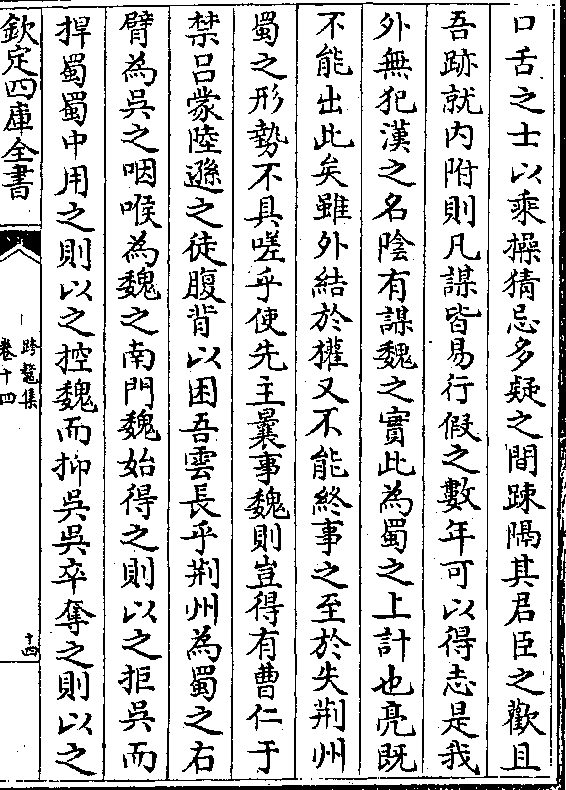 口舌之士以乘操猜忌多疑之間踈隔其君臣之歡且
吾跡就内附則凡謀皆易行假之數年可以得志是我
外無犯漢之名陰有謀魏之實此為蜀之上計也亮既
不能出此矣雖外結於權又不能終事之至於失荆州
蜀之形勢不具嗟乎使先主曩事魏則豈得有曹仁于
禁吕蒙陸遜之徒腹背以困吾雲長乎荆州為蜀之右
臂為吳之咽喉為魏之南門魏始得之則以之拒吳而
捍蜀蜀中用之則以之控魏而抑吳吳卒奪之則以之
欽定四庫全書
跨鼇集
卷十四
十四